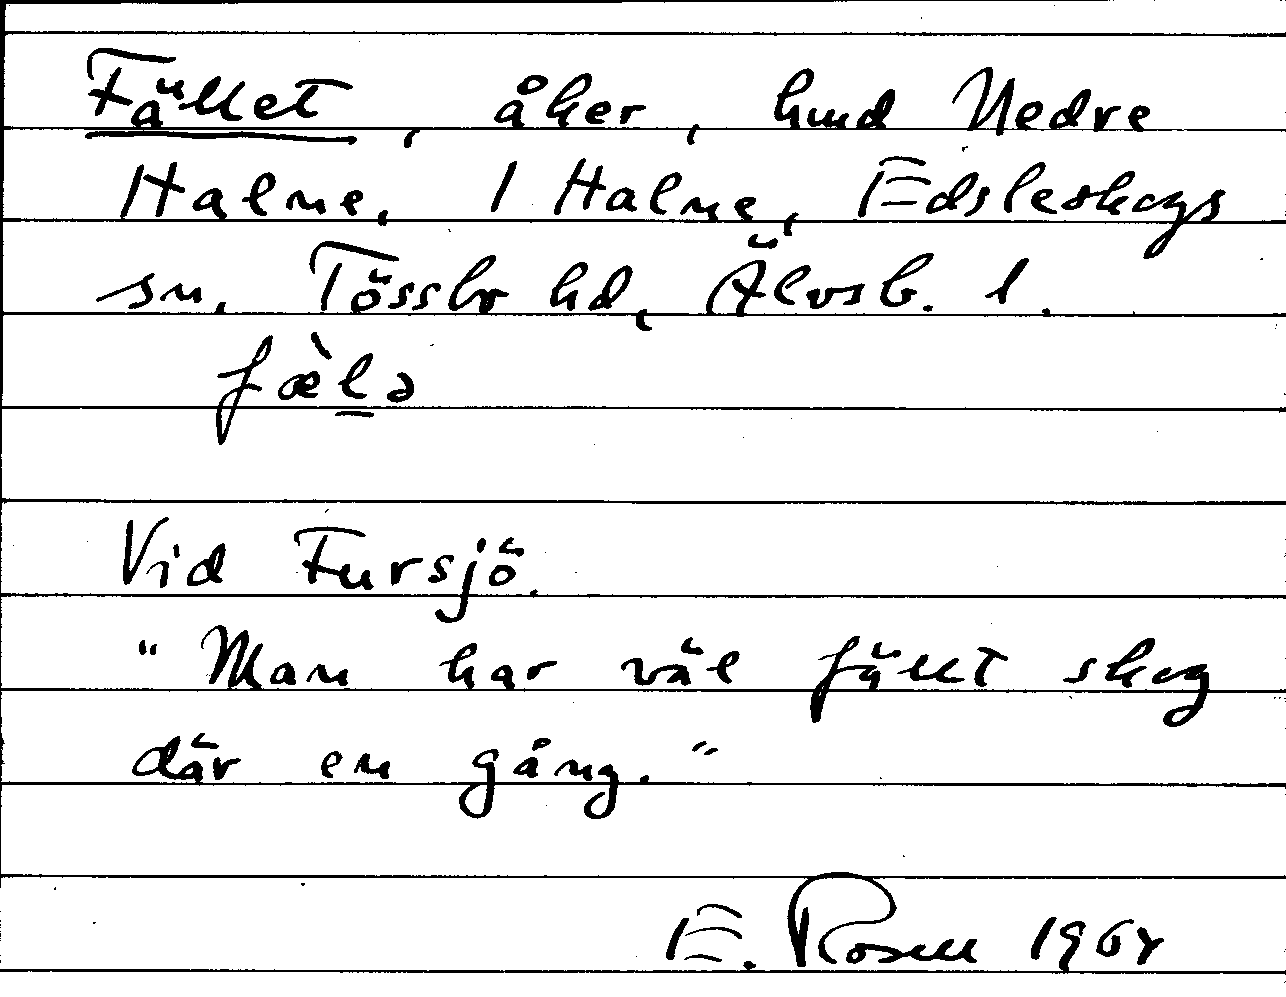 Fället, åker, hmd Nedre
Halne, 1 Halne, Edsleskogs
sn, Tössbo hd, Älvsb. l.
fæ̀l̲ə
Vid Fursjö.
"Man har väl fällt skog
där en gång."
E. Rosell